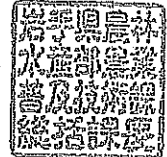 岩手県農林
水産部農業
普及技術課
総括課長